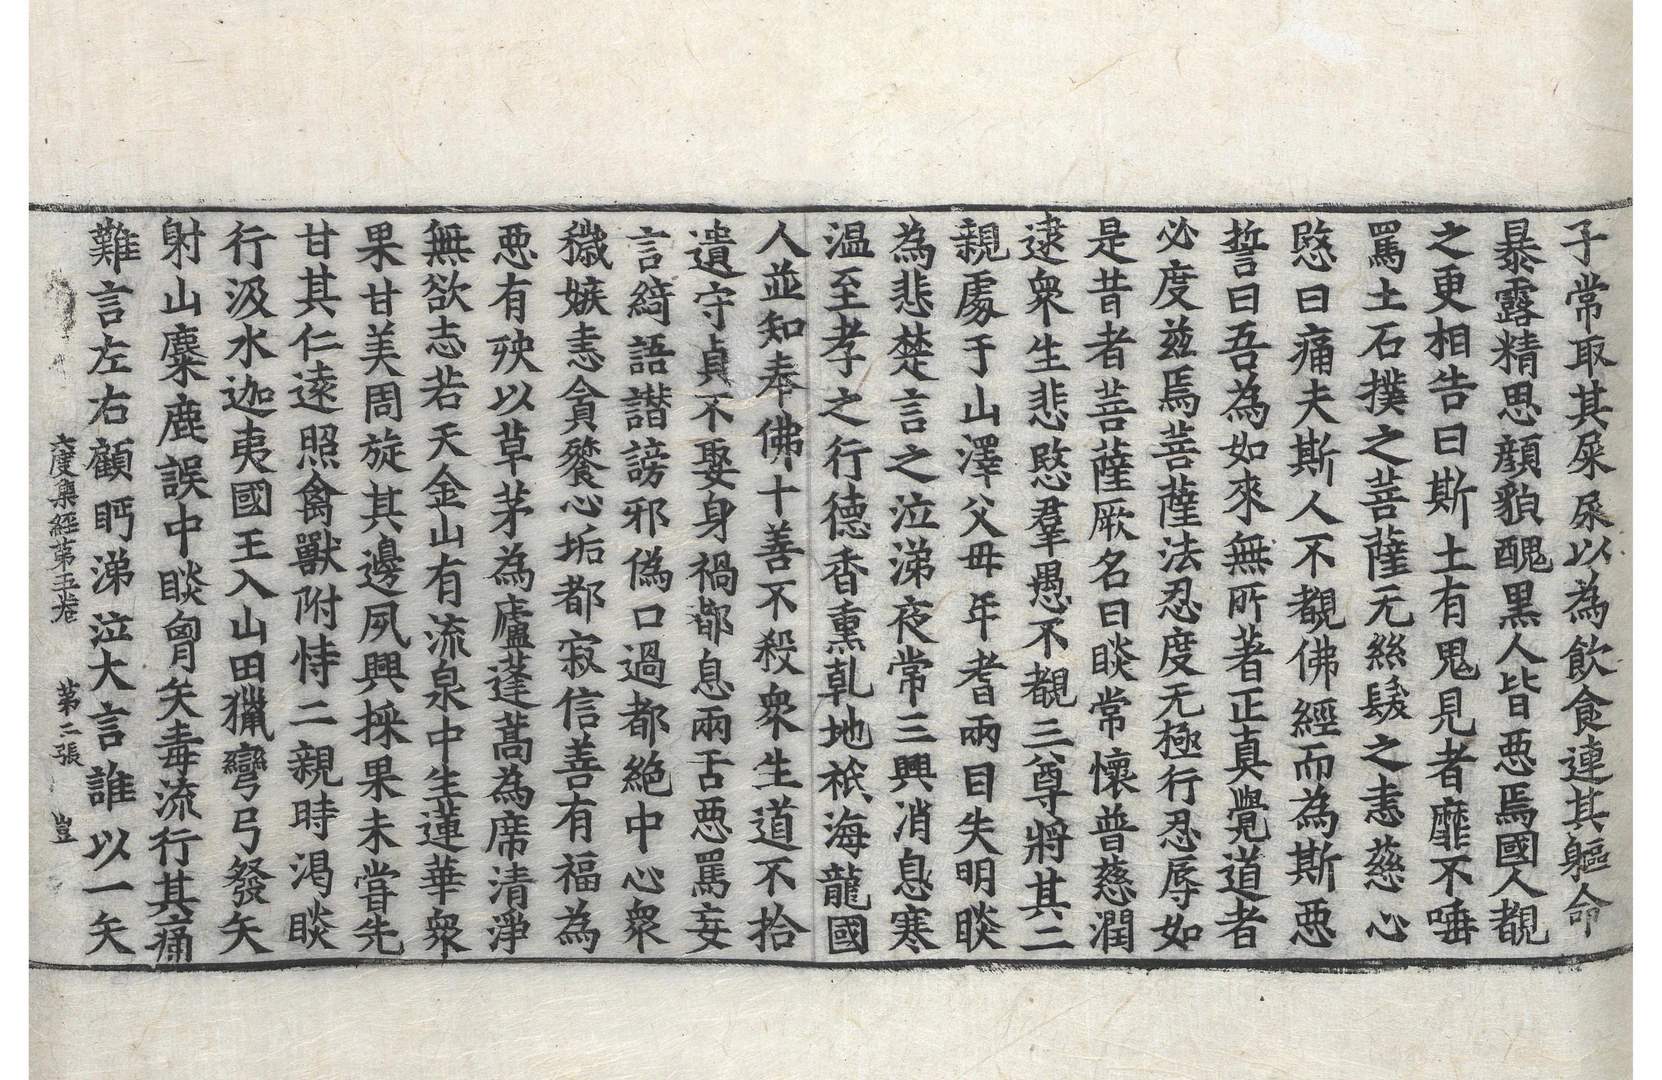 子常取其屎尿以為飲食連其軀命
暴露精思顔貌醜黑人皆惡焉國人覩
之更相告曰斯土有鬼見者靡不唾
罵土石撲之菩薩无絲髮之恚慈心
愍曰痛夫斯人不覩佛經而為斯惡
誓曰吾為如來無所著正真覺道者
必度茲焉菩薩法忍度无極行忍辱如
是昔者菩薩厥名曰睒常懷普慈潤
逮衆生悲愍羣愚不覩三尊將其二
親處于山澤父母年耆兩目失明睒
為悲楚言之泣涕夜常三興消息寒
温至孝之行德香熏乹地祇海龍國
人並知奉佛十善不殺衆生道不拾
遺守貞不娶身禍都息兩舌惡罵妄
言綺語譖謗邪偽口過都絶中心衆
穢嫉恚貪餮心垢都寂信善有福為
惡有殃以草茅為廬蓬蒿為席清淨
無欲志若天金山有流泉中生蓮華衆
果甘美周旋其邊夙興採果未甞先
甘其仁逺照禽獸附恃二親時渴睒
行汲水迦夷國王入山田獵彎弓發矢
射山麋鹿誤中睒胷矢毒流行其痛
難言左右顧眄涕泣大言誰以一矢
六度集經第五卷 第二張 豈